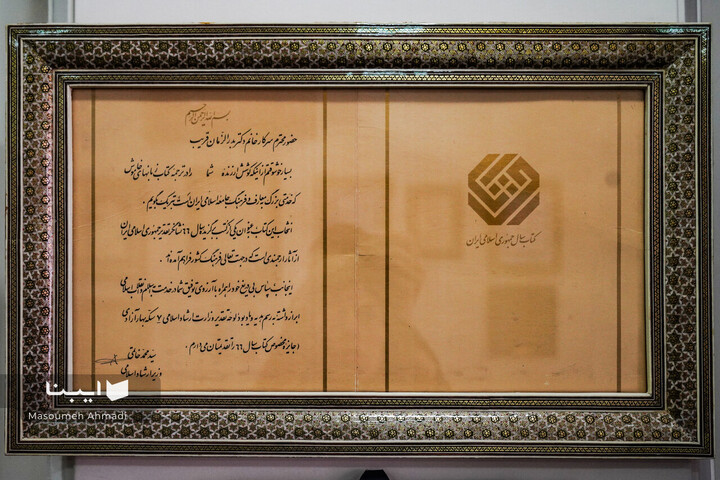 بسم الله الرحمن الرحیم
حضور محترم سرکار خانم دکتر بدرالزمان قریب
بسیار خوشوقتم از اینکه کوشش ارزنده شما را در ترجمه کتاب زبانهای خاموش
که خدمتی بزرگ به معارف و فرهنگ جامعه اسلامی ایران است تبریک بگویم.
انتخاب این کتاب بعنوان یکی از کتب برگزیده سال ۶۶ نشانگر تقدیر جمهوری اسلامی ایران
از آثار ارجمندی است که در جهت تعالی فرهنگ کشور فراهم آمده است.
اینجانب سپاس بی دریغ خود را همراه با آرزوی توفیق شما در خدمت به اسلام و انقلاب اسلامی
ابراز داشته به رسم هدیه و یادبود لوحه تقدیر وزارت ارشاد اسلامی ۷ سکه بهار آزادی
و جایزه مخصوص کتاب سال ۶۶ را تقدیمتان میدارم.
سید محمد خاتمی
وزیر ارشاد اسلامی
کتاب سال جمهوری اسلامی ایران
ایبنا
Masoumeh Ahmadi